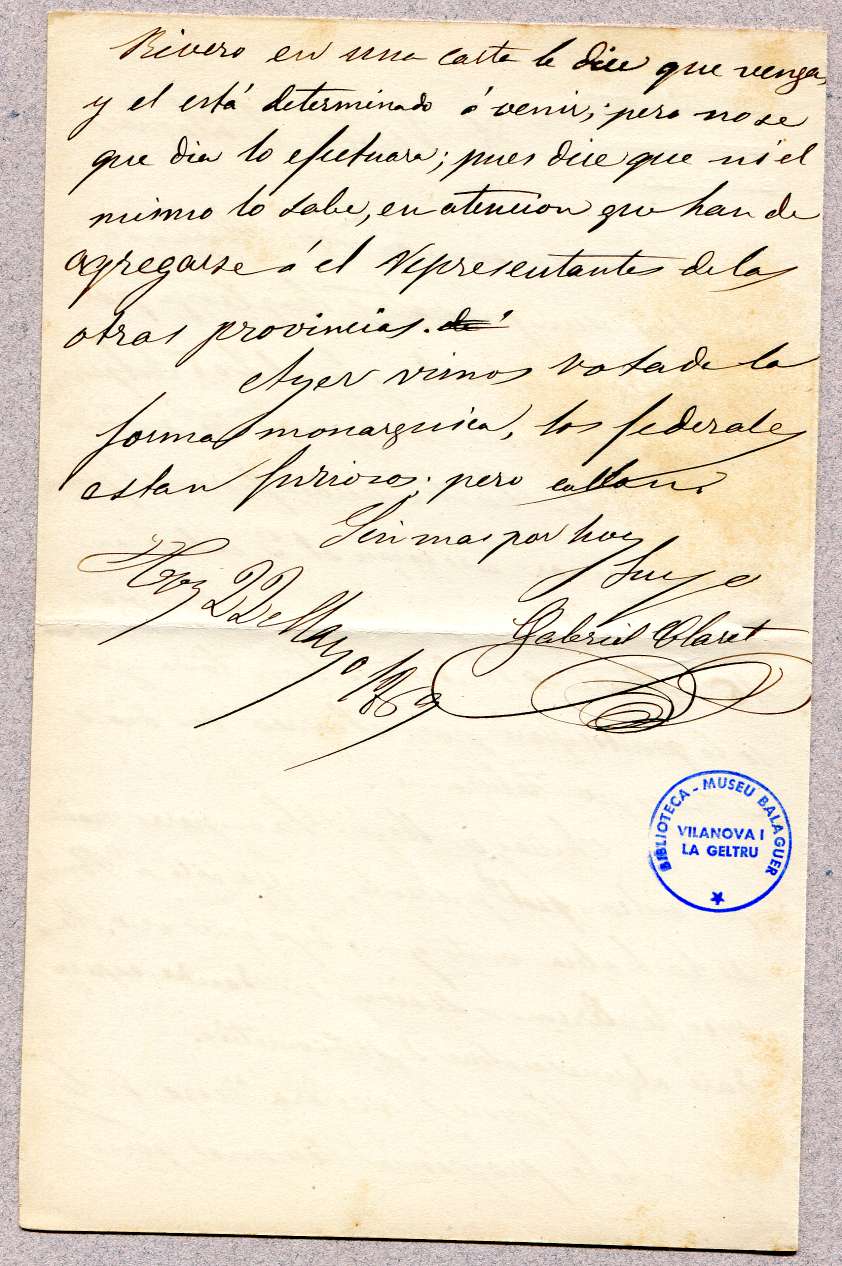 Rivero en una carta le dice que venga,
y el está determinado á venir; pero no se
que dia lo efectuara; pues dice que ni el
mismo lo sabe, en atencion que han de
agregarse á el representantes de las
otras provincias. de
Ayer vimos votada la
forma monarquica, los federales
estan furiosos; pero callan.
Sin mas por hoy
Suyo
Hoy 22 Mayo 1869
Gabriel Claret
BIBLIOTECA - MUSEU BALAGUER
VILANOVA I
LA GELTRU